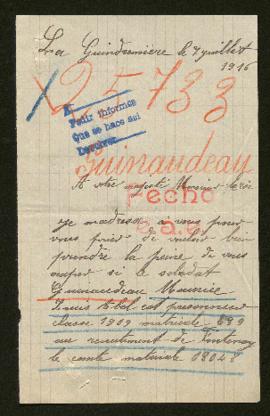 La Guindonnière le 7 juillet
1916
25733
Pedir informes
que se hace así
Guinaudeau
A votre majesté Monsieur le roi
Fecho
je madresse a vous pour
vous prier de vouloir bien
prendre la peine de vous
si le soldat
Guinaudeau Maurice
Louis est prisonnier
classe 1907 matricule 689
au recrutement de Fontenay
le comte matricule 18048